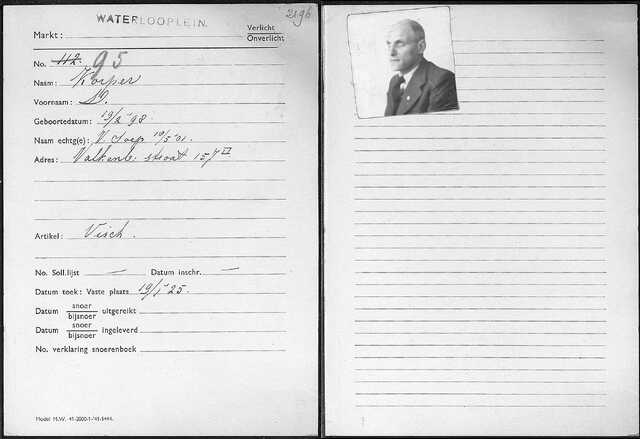 WATERLOOPLEIN.
2196
Markt: Verlicht
Onverlicht
No. 112. 95
Naam: Korper
Voornaam: D.
Geboortedatum: 19/2 '98
Naam echtg(e): V. Soep 10/5 '01.
Adres: Valkenb. straat 157
Artikel: Visch.
No. Soll.lijst — Datum inschr. —
Datum toek: Vaste plaats 19/1 '25.
Datum snoer
bijsnoer uitgereikt
Datum snoer
bijsnoer ingeleverd
No. verklaring snoerenboek
Model M.W. 41-2000-1-'41-1444.